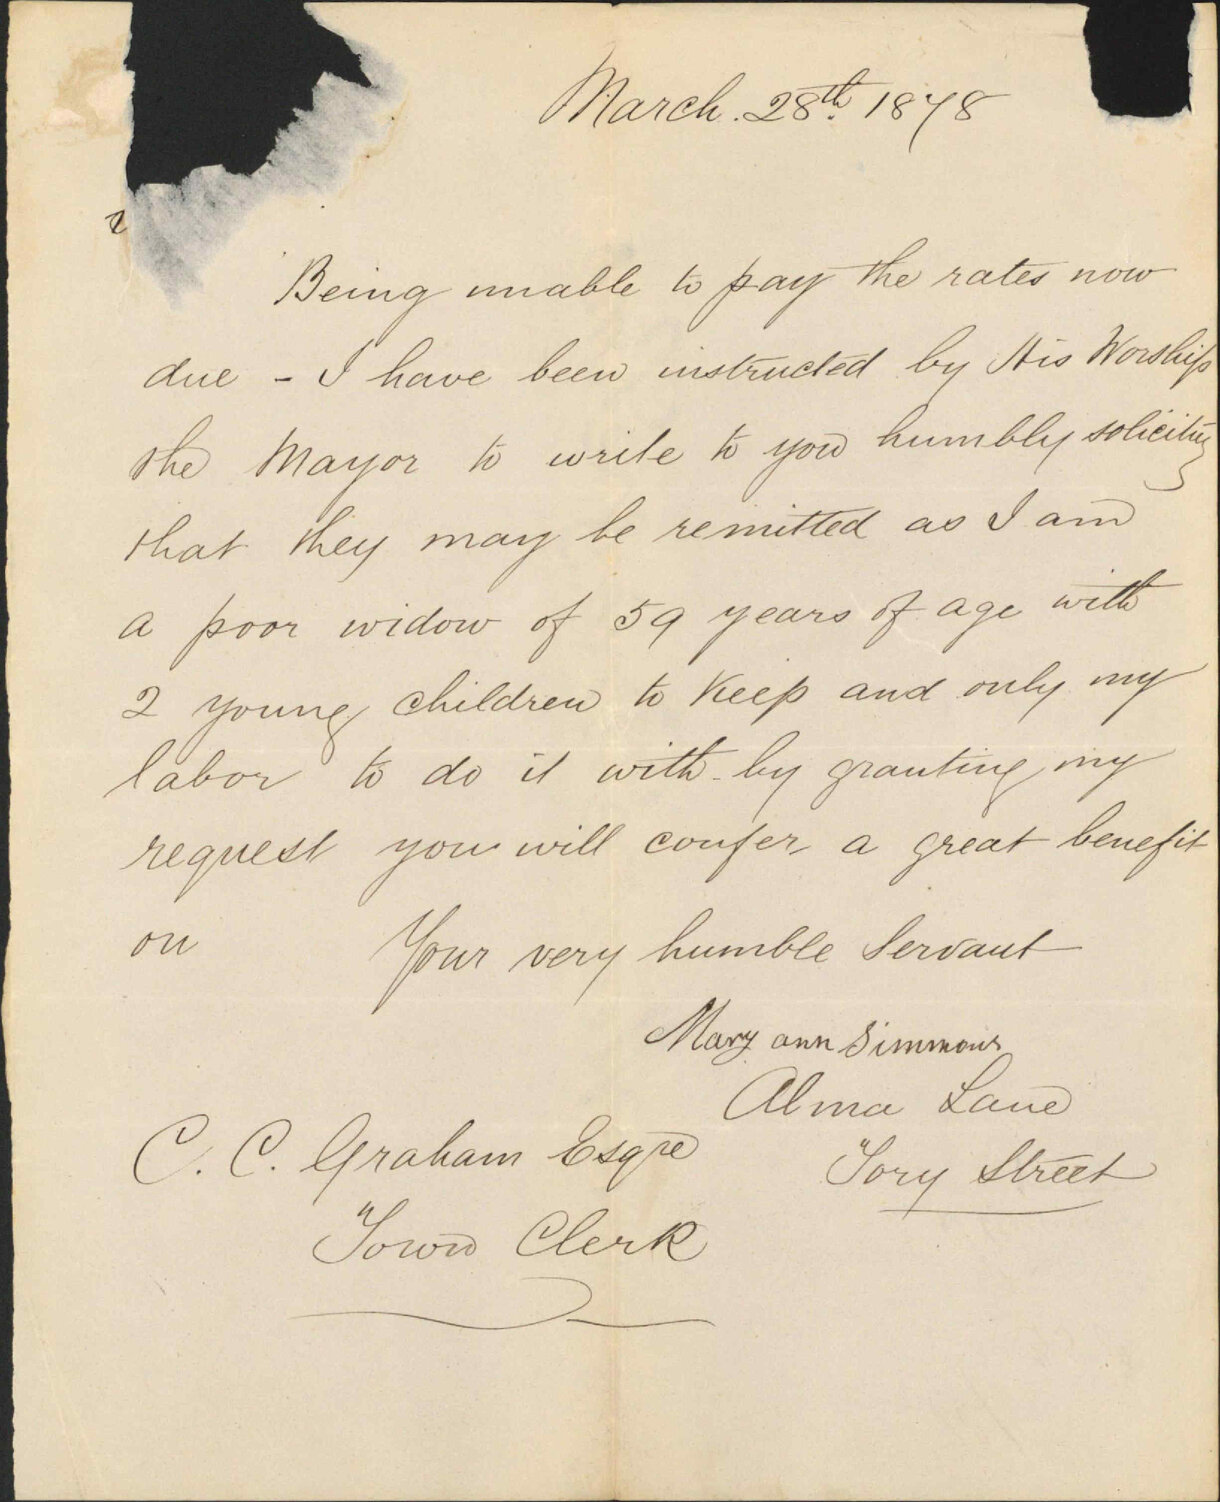 March. 28th. 1878
Being unable to pay the rates now
due - I have been instructed by His Worship
the Mayor to write to you humbly soliciting
that they may be remitted as I am
a poor widow of 59 years of age with
2 young children to keep and only my
labor to do it with - by granting my
request you will confer a great benefit
on Your very humble Servant
Mary ann Simmons
Alma Lane
Tory Street
C. C. Graham Esqre
Town Clerk